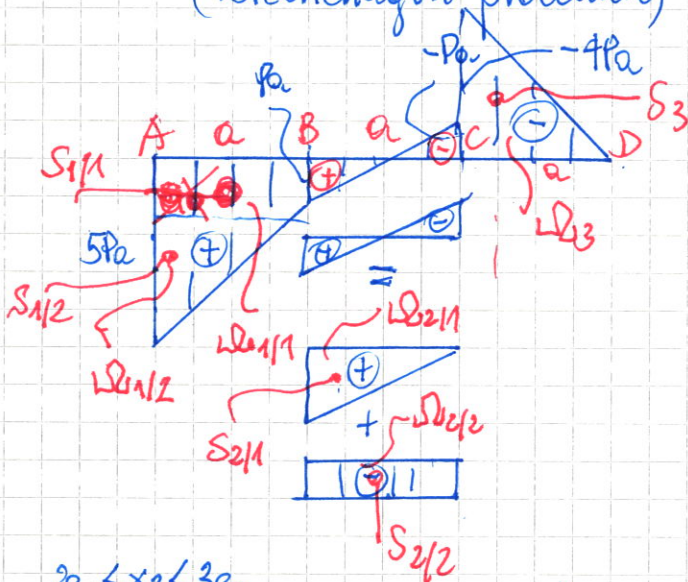 -Pa
-4Pa
Pa
S3
A a B a C a D
+ - -
S1/1
5Pa +
Ω3
+ -
S1/2
=
Ω1/2 Ω1/1 Ω2/1
+
+
S2/1 Ω2/2
-
S2/2